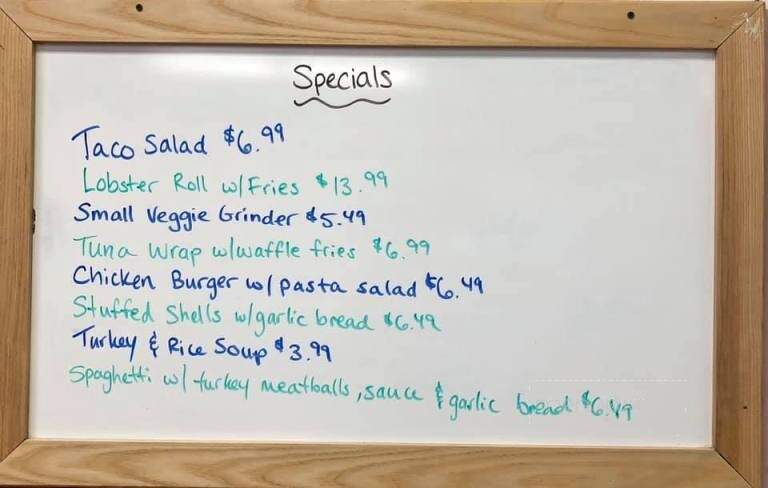 Specials
Taco Salad $6.99
Lobster Roll w/Fries $13.99
Small Veggie Grinder $5.49
Tuna Wrap w/waffle fries $6.99
Chicken Burger w/ pasta salad $6.49
Stuffed Shells w/garlic bread $6.49
Turkey & Rice Soup $3.99
Spaghetti w/ turkey meatballs, sauce & garlic bread $6.49